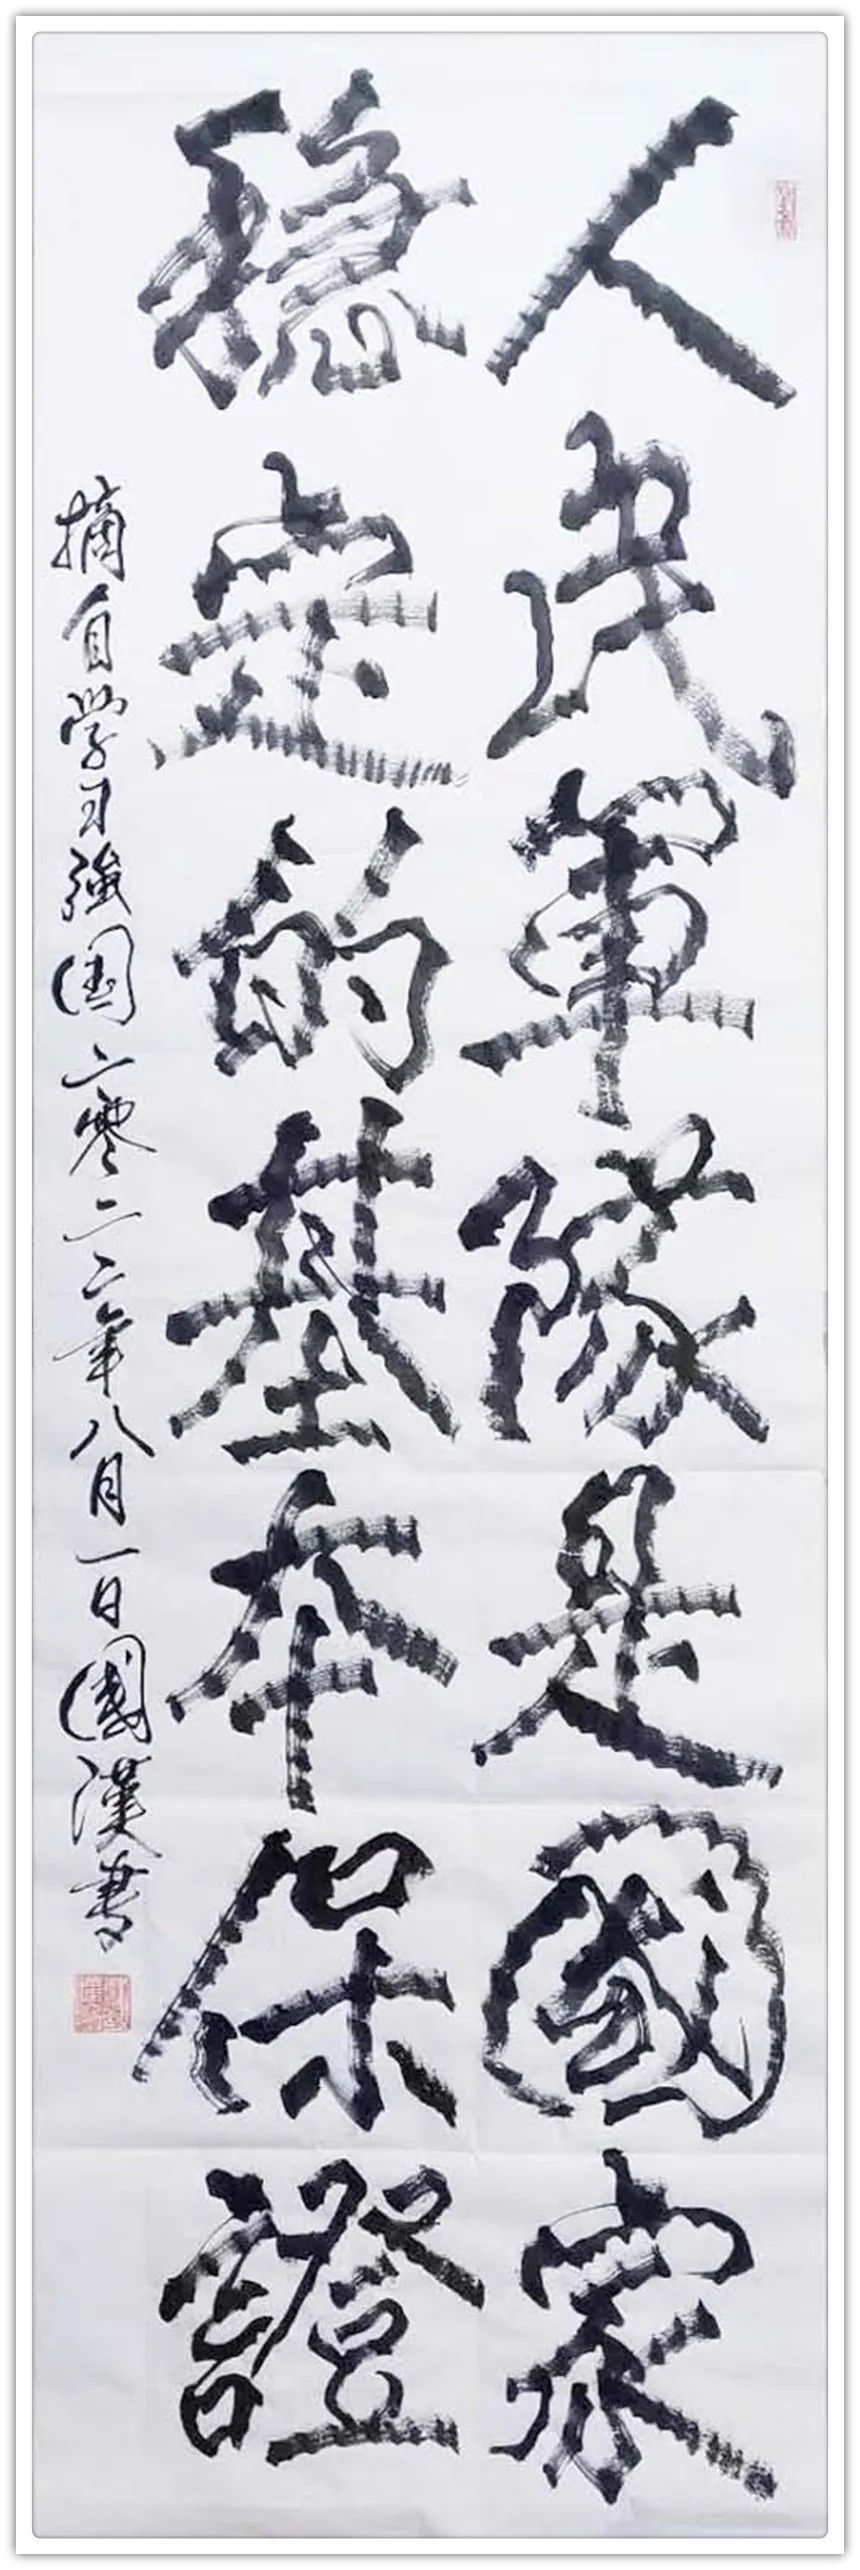 人民軍隊是國家
穩定的基本保證
摘自学习強国二零二二年八月一日國漢書